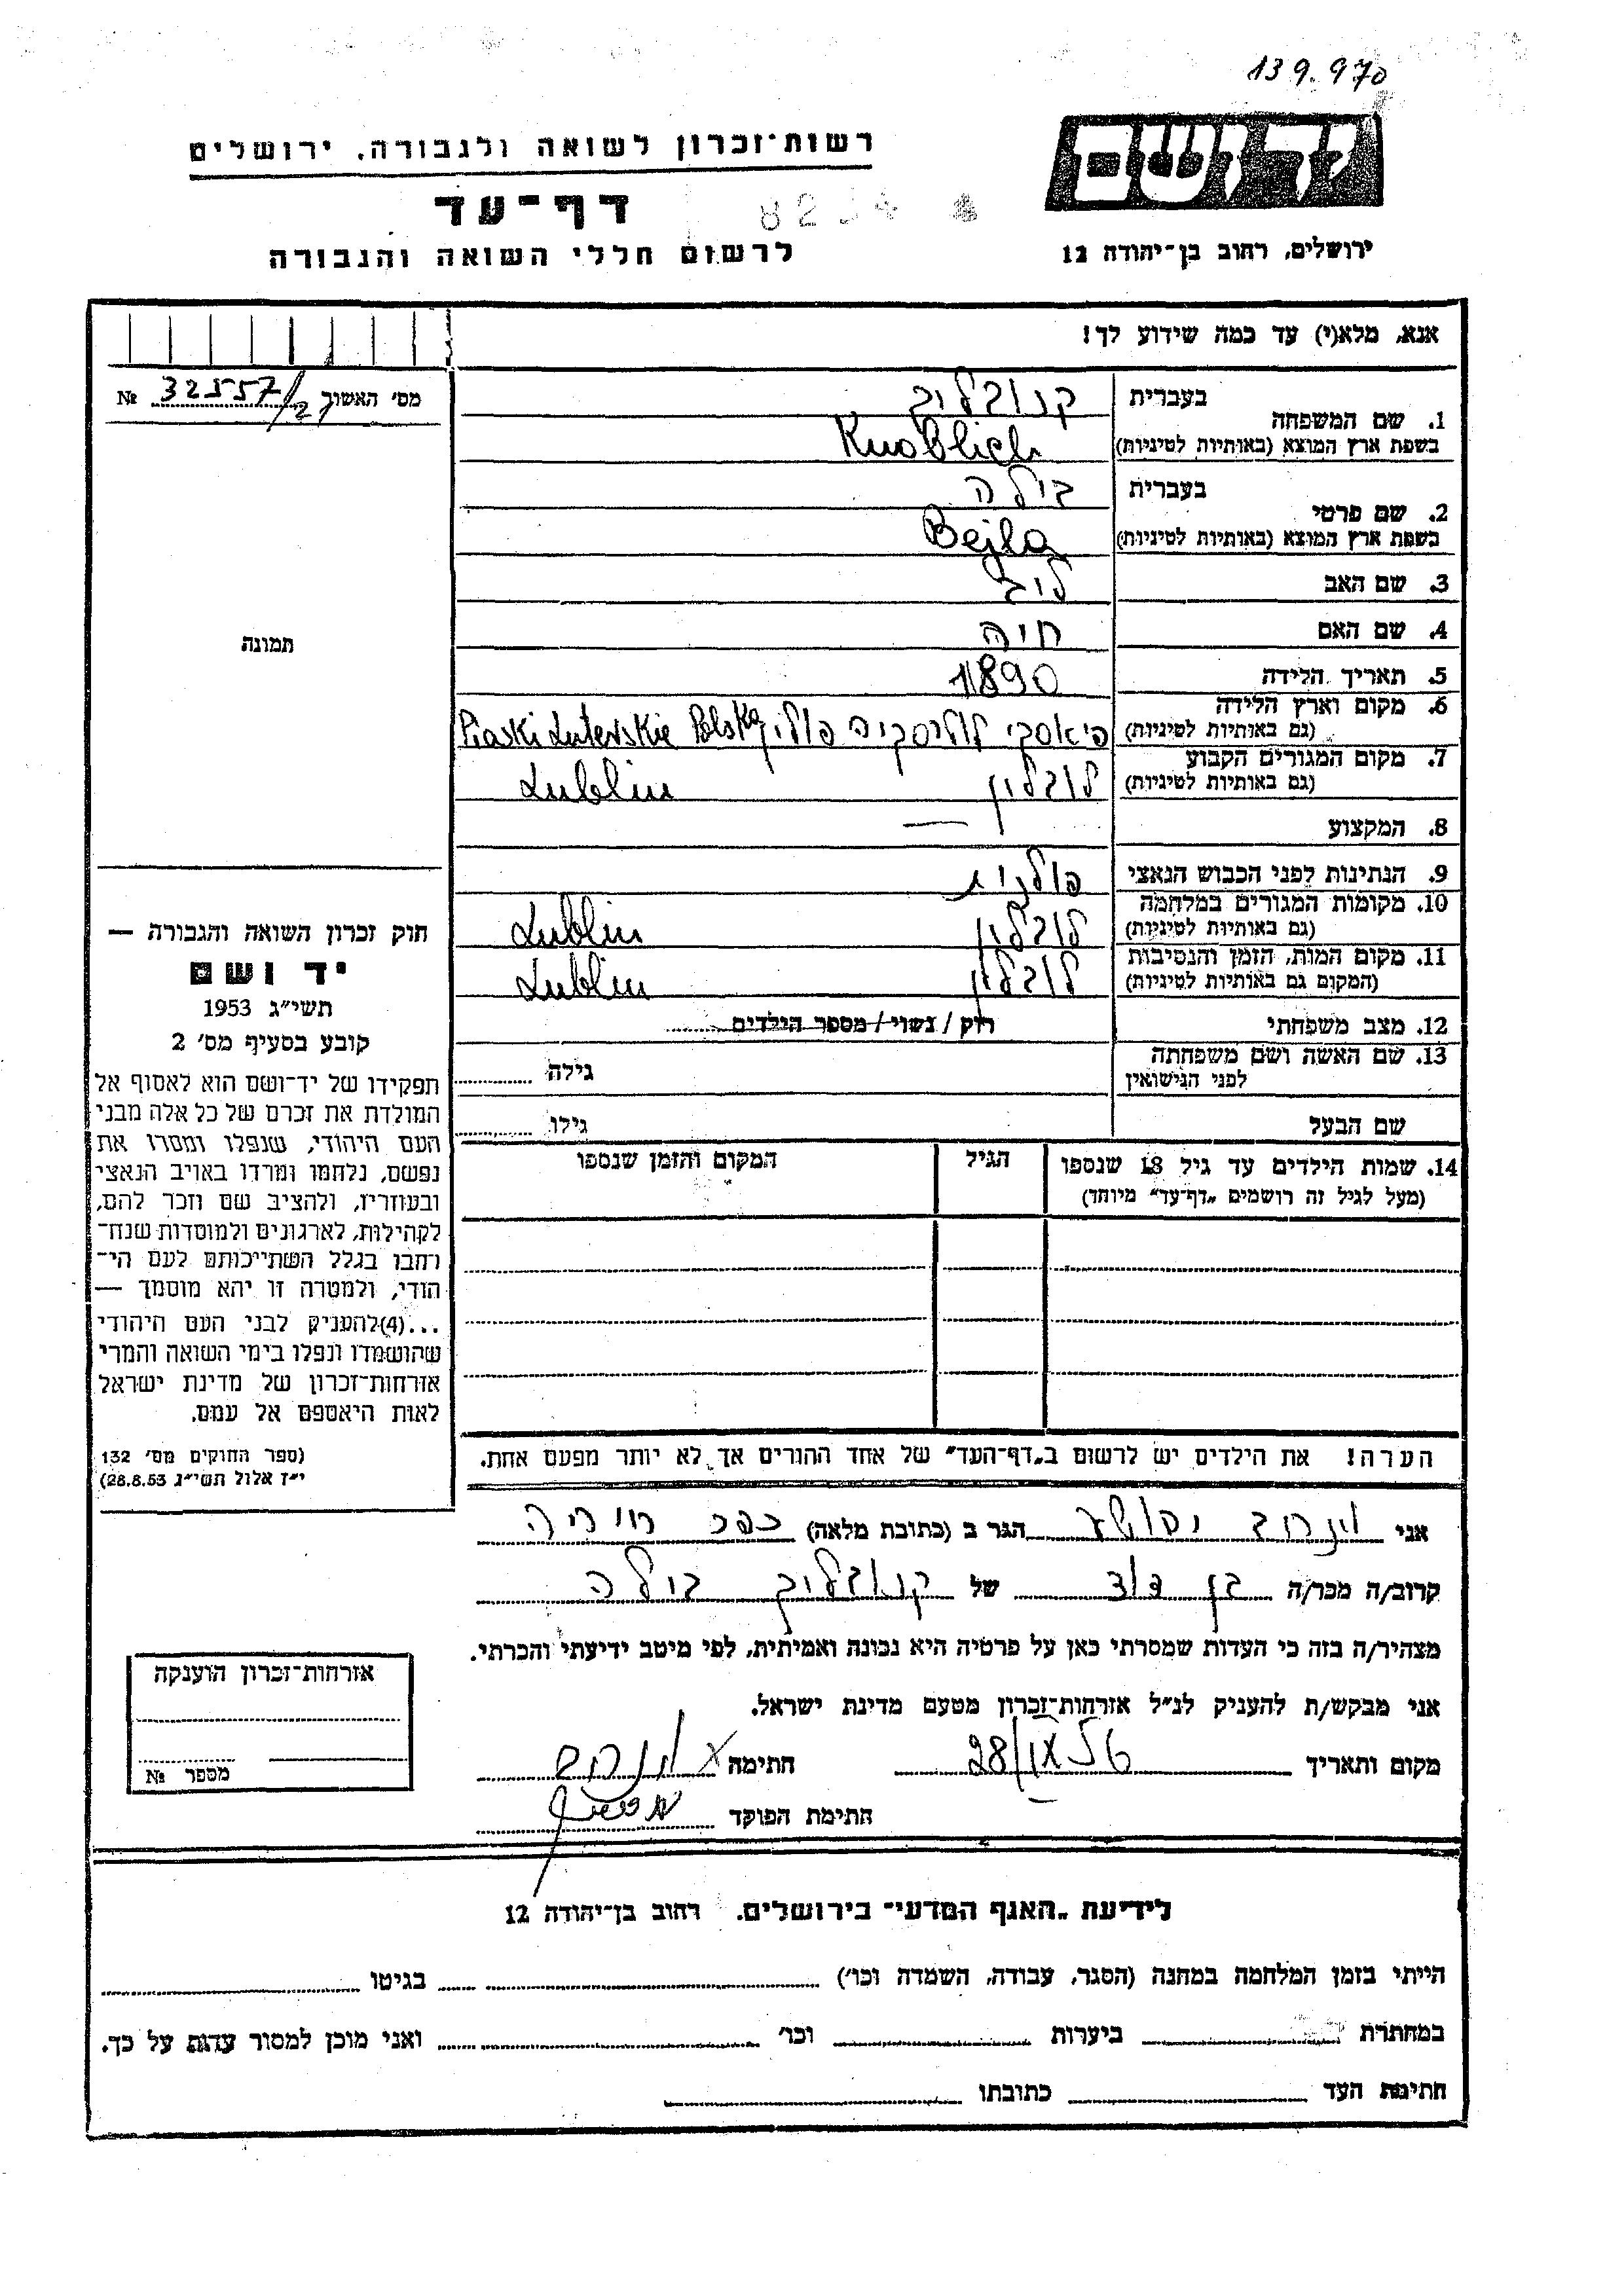 139.970
יד ושם
רשות־זכרון לשואה ולגבורה, ירושלים
דף־עד
לרשום חללי השואה והגבורה
ירושלים, רחוב בן־יהודה 12
אנא, מלא(י) עד כמה שידוע לך!
מס' האשור 32557/21 №
תמונה
1. שם המשפחה
בעברית קנובליך
בשפת ארץ המוצא (באותיות לטיניות) Knoblich
2. שם פרטי
בעברית בילה
בשפת ארץ המוצא (באותיות לטיניות) Bejla
3. שם האב לייב
4. שם האם חיה
5. תאריך הלידה 1890
6. מקום וארץ הלידה
(גם באותיות לטיניות) פיאסקי פולין Piaski Luterskie Polska
7. מקום המגורים הקבוע
(גם באותיות לטיניות) לובלין Lublin
8. המקצוע —
9. הנתינות לפני הכבוש הנאצי פולנית
10. מקומות המגורים במלחמה
(גם באותיות לטיניות) לובלין Lublin
11. מקום המות, הזמן והנסיבות
(המקום גם באותיות לטיניות) לובלין Lublin
12. מצב משפחתי רוק / נשוי / מספר הילדים
13. שם האשה ושם משפחתה
לפני הנישואין גילה
שם הבעל גילו
14. שמות הילדים עד גיל 18 שנספו הגיל המקום והזמן שנספו
(מעל לגיל זה רושמים „דף־עד" מיוחד)
חוק זכרון השואה והגבורה —
יד ושם
תשי״ג 1953
קובע בסעיף מס' 2
תפקידו של יד־ושם הוא לאסוף אל
המולדת את זכרם של כל אלה מבני
העם היהודי, שנפלו ומסרו את
נפשם, נלחמו ומרדו באויב הנאצי
ובעוזריו, ולהציב שם וזכר להם,
לקהילות, לארגונים ולמוסדות שנח־
רחבו בגלל השתייכותם לעם הי־
הודי, ולמטרה זו יהא מוסמך —
...(4)להעניק לבני העם היהודי
שהושמדו ונפלו בימי השואה והמרי
אזרחות־זכרון של מדינת ישראל
לאות היאספם אל עמם.
(ספר החוקים מס' 132
י״ז אלול תשי״ג 28.8.53)
הערה! את הילדים יש לרשום ב„דף־העד" של אחד ההורים אך לא יותר מפעם אחת.
אני הגר ב (כתובת מלאה) כפר
קרוב/ה מכר/ה בן דוד של קנובליך בילה
מצהיר/ה בזה כי העדות שמסרתי כאן על פרטיה היא נכונה ואמיתית, לפי מיטב ידיעתי והכרתי.
אני מבקש/ת להעניק לנ״ל אזרחות־זכרון מטעם מדינת ישראל.
מקום ותאריך 28/ חתימה
חתימת הפוקד
אזרחות־זכרון הוענקה
מספר №
לידיעת „האגף המדעי" בירושלים. רחוב בן־יהודה 12
הייתי בזמן המלחמה במחנה (הסגר, עבודה, השמדה וכו') בגיטו
במחתרת ביערות וכו' ואני מוכן למסור עדות על כך.
חתימת העד כתובתו